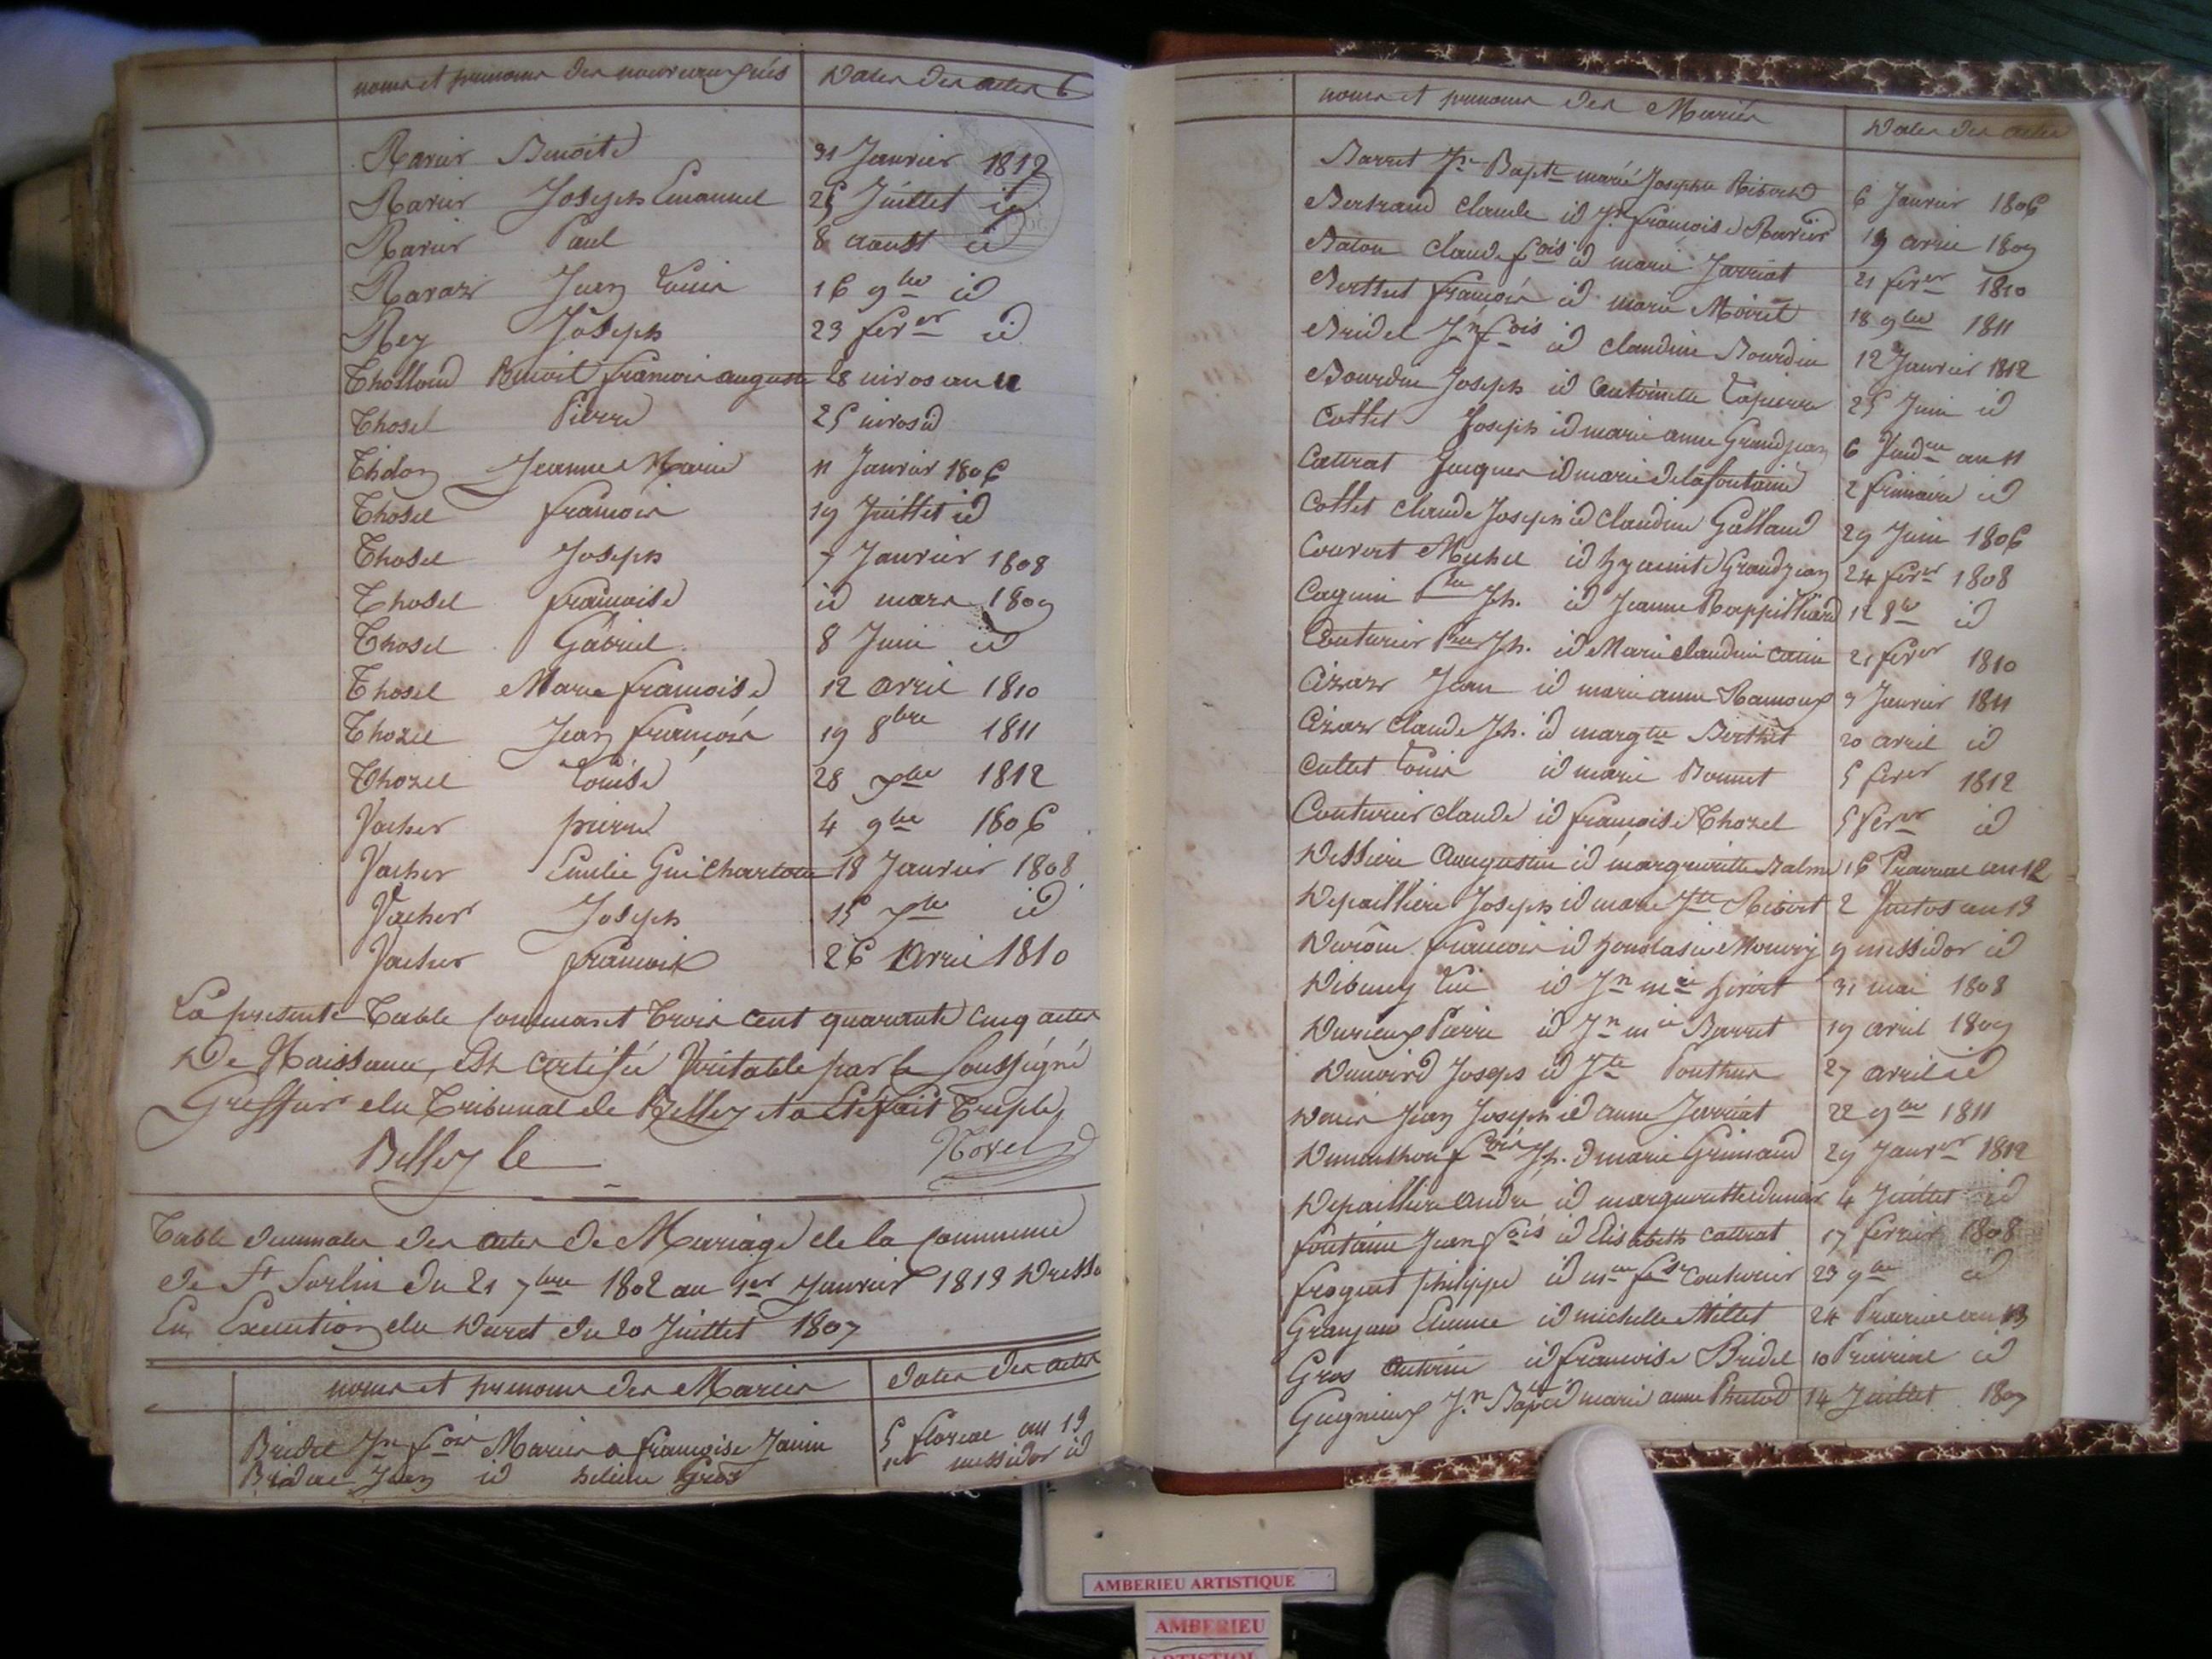 noms et prenoms des nouveaux nés Dates des actes 6
Ravier Benoite 31 Janvier 1812
Ravier Joseph Emanuel 25 Juillet id
Ravier Paul 8 aoust id
Ravaz Jean Louis 16 9bre id
Rey Joseph 23 fever id
Thollond Benoit francois auguste 28 nivos an 11
Thosel Pierre 25 nivos id
Thidon Jeanne Marie 11 Janvier 1806
Thosel francois 19 Juillet id
Thosel Joseph 7 Janvier 1808
Thosel francoise id mars 1809
Thosel Gabriel 8 Juin id
Thosel Marie francoise 12 avril 1810
Thozel Jean françois 19 8bre 1811
Thozel Louise 28 1812
Vacher pierre 4 9bre 1806
Vacher Emilie Guichartone 18 Janvier 1808
Vacher Joseph 15 id
Vacher francois 26 Avril 1810
La presente Table Contenant Trois cent quarante Cinq actes
De Naissance, est certifié Veritable par le Soussigné
Greffier du Tribunal de Belley et a été fait Triple
Belley le
Table decennales des actes De Mariage de la Commune
de St Sorlin du 21 7bre 1802 au 1er Janvier 1813 Dressé
En Execution du Decret du 20 Juillet 1807
noms et prenoms des Mariés Dates des actes
Bridel Jn fois Marié a françoise Janin 5 floreal an 13
Jean id heleine Gros 1er messidor id
noms et prenoms des Mariés Dates des actes
Barret Jn Bapte marié Josephte Ribod 6 Janvier 1806
Bertrand claude id Jne francoise Ravier 19 avril 1809
claude fois id marie Jarriat 21 fever 1810
Berthet françois id marie Moiret 18 9bre 1811
Bridel Jn fois id claudine Bourdin 12 Janvier 1812
Bourdin Joseph id antoinette Lapierre 25 Juin id
Cottet Joseph id marie anne Grandjean 6 Vendre an 11
Cattrat Jacques id marie Delafontaine 2 frimaire id
Cottet Claude Joseph id claudine Galland 29 Juin 1806
Couvert Michel id hyacinte Grandjean 24 fever 1808
Jh. id Jeanne 12 8bre id
Couturier Jh. id Marie claudine 21 fever 1810
Cizar Jean id marie anne Ramoux 9 Janvier 1811
Cizar Claude Jh. id margte Berthet 20 avril id
Cottet Louis id marie Bonnet 5 fever 1812
Couturier claude id françoise Thozel 5 fever id
augustin id marguerite Balme 16 Prairial an 12
Depailliere Joseph id marie Jte Ribod 2 Ventos an 13
francois id 9 messidor id
id Jn mie 31 mai 1808
Durieux Pierre id Jn mie Barret 19 avril 1809
Joseph id Jte Ponthus 27 avril id
Jean Joseph id anne Jarriat 22 9bre 1811
fois Jh. id marie Grimaud 29 Janver 1812
Depailliere andré id marguerite 4 Juillet id
fontaine Jean fois id Elisabeth Cattrat 17 fevrier 1808
froquet philippe id mie fse Couturier 23 9bre id
Granjean Etienne id michelle Millet 24 Prairial an 13
Gros antoine id francoise Bridel 10 Prairial id
Guigneux Jn Bapte id marie anne 14 Juillet 1807
AMBERIEU ARTISTIQUE
AMBERIEU
ARTISTIQUE